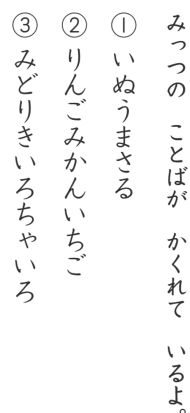 みっつの ことばが かくれて いるよ。
① いぬうまさる
② りんごみかんいちご
③ みどりきいろちゃいろ